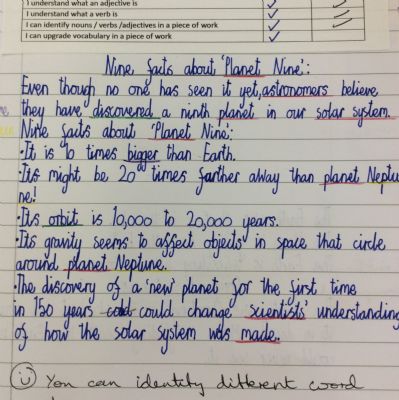 I understand what an adjective is
I understand what a verb is
I can identify nouns / verbs /adjectives in a piece of work
I can upgrade vocabulary in a piece of work
Nine facts about 'Planet Nine':
Even though no one has seen it yet, astronomers believe
they have discovered a ninth planet in our solar system.
Nine facts about 'Planet Nine':
•It is 10 times bigger than Earth.
•Its might be 20 times farther away than planet Neptu
ne!
•Its orbit is 10,000 to 20,000 years.
•Its gravity seems to affect objects in space that circle
around planet Neptune.
•The discovery of a 'new' planet for the first time
in 150 years could change scientists' understanding
of how the solar system was made.
You can identify different word